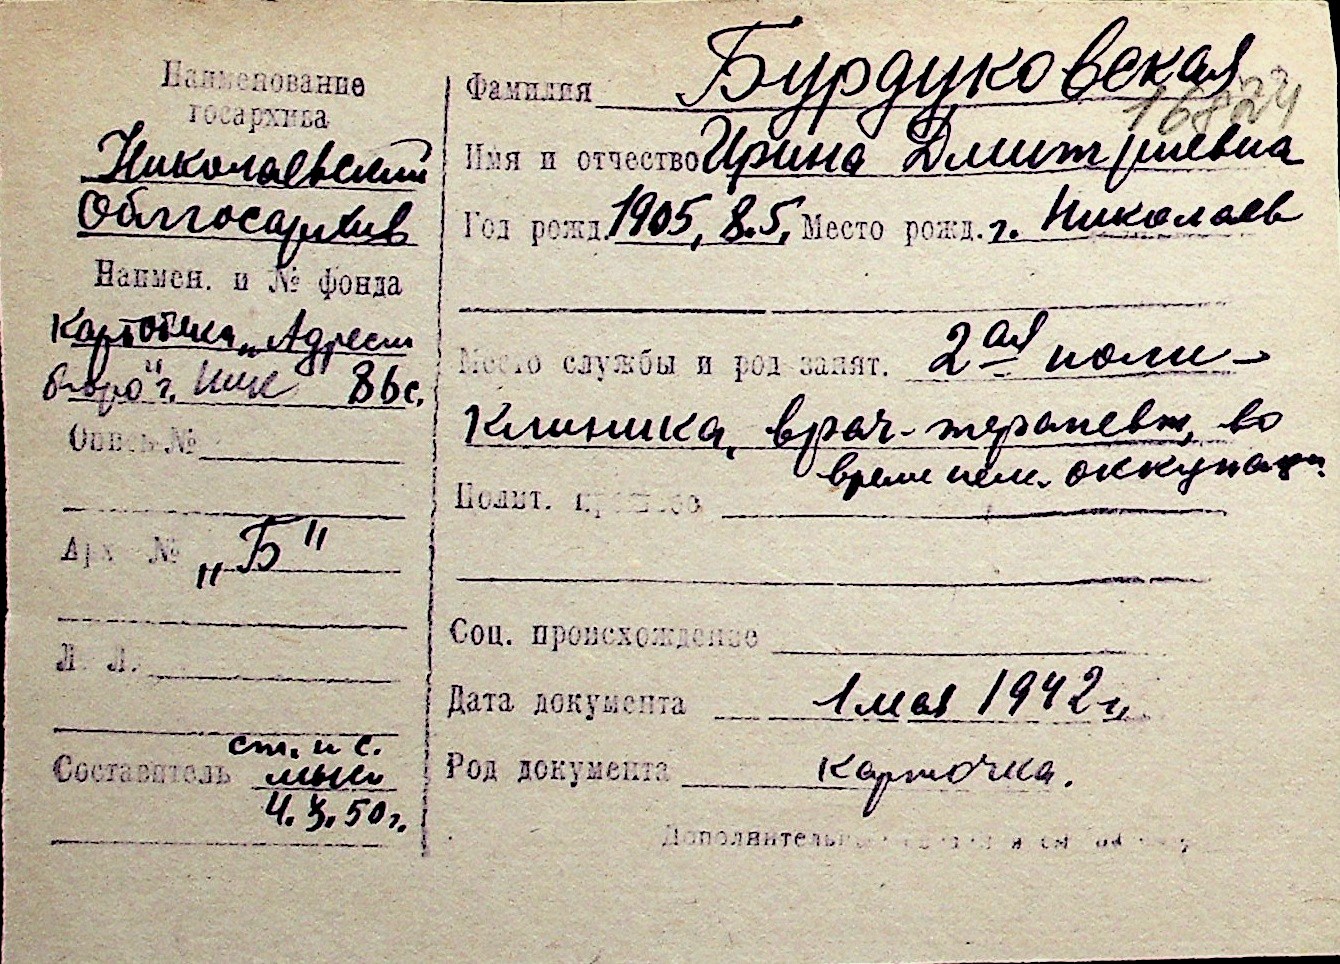 Наименование
госархива
Николаевский
Облгосархив
Наимен. и № фонда
Картотека „Адресн
бюро" г. Ник 86с.
Опись №
Арх №
„Б"
Л. Л.
Составитель ст. н с.
4.X.50г.
Фамилия Бурдуковская
Имя и отчество Ирина Дмитриевна
Год рожд. 1905, 8.5, Место рожд. г. Николаев
Место службы и род занят. 2ая поли-
клиника, врач-терапевт, во
время нем. оккупации
Полит.
Соц. происхождение
Дата документа 1 мая 1942 г,
Род документа карточка.